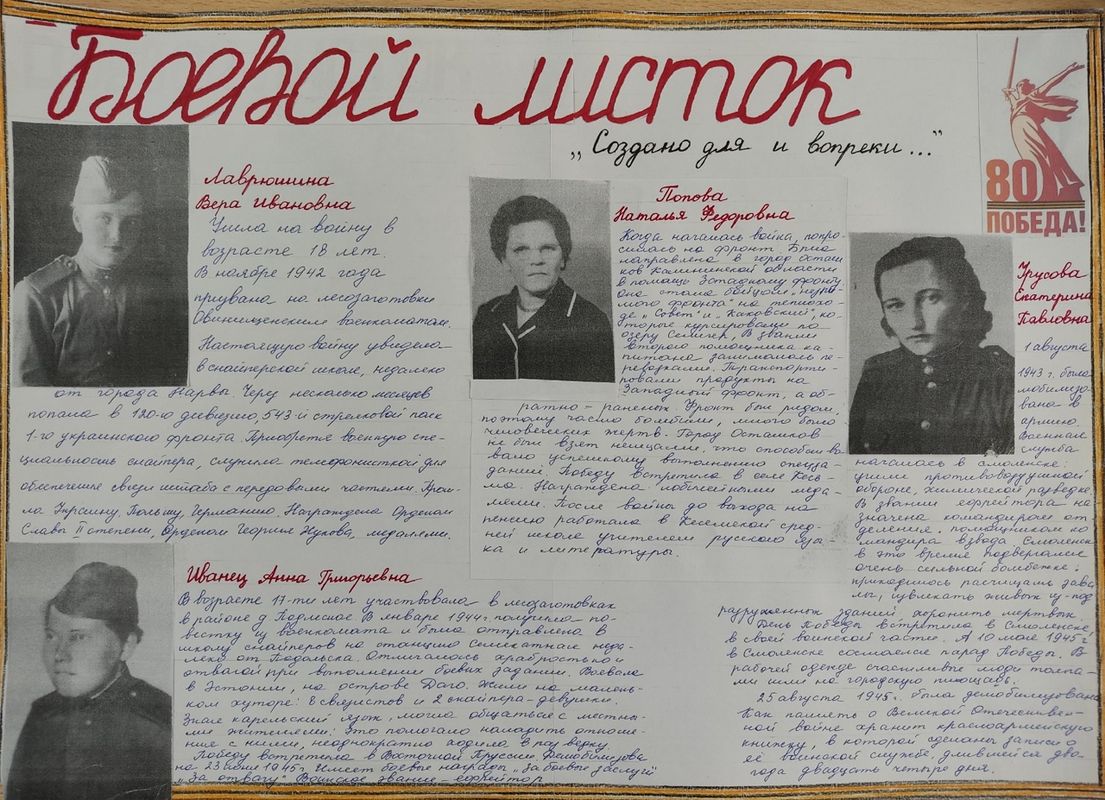 Боевой листок
„Создано для и вопреки..."
80
ПОБЕДА!
Лаврюшина
Вера Ивановна
Ушла на войну в
возрасте 18 лет.
В ноябре 1942 года
призвана на лесозаготовки
Овинищенским военкоматом.
Настоящую войну увидела
в снайперской школе, недалеко
от города Нарвы. Через несколько месяцев
попала в 120-ю дивизию, 543-й стрелковый полк
1-го украинского фронта. Приобретя военную спе-
циальность снайпера, служила телефонисткой для
обеспечения связи штаба с передовыми частями. Прош-
ла Украину, Польшу, Германию. Награждена Орденом
Славы II степени, Орденом Георгия Жукова, медалями.
Попова
Наталья Федоровна
Когда началась война, попро-
силась на фронт. Была
направлена в город Осташ
ков Калининской области
в помощь Западному фронту
Она стала бойцом
мого фронта" на теплохо-
де „Совет" и „Каховский", ко-
торые курсировали по
озеру Селигер. В звании
второго помощника ка-
питана занималась пе-
ревозками. Транспорти-
ровали продукты на
Западный фронт, а об-
ратно - раненых. Фронт был рядом,
поэтому часто бомбили, много было
человеческих жертв. Город Осташков
не был взят немцами, это способство-
вало успешному выполнению спецза-
даний. Победу встретила в селе Кесь-
ма. Награждена юбилейными меда-
лями. После войны до выхода на
пенсию работала в Кесемской сред-
ней школе учителем русского язы-
ка и литературы.
Трусова
Екатерина
Павловна
1 августа
1943 г. была
мобилизо-
вана в
армию.
Военная
служба
началась в Смоленске:
учили противовоздушной
обороне, химической разведке.
В звании ефрейтора на
значена командиром от
деления, помощником ко-
мандира взвода. Смоленск
в это время подвергался
очень сильной бомбежке:
приходилось расчищать зава
лы, извлекать живых из-под
разрушенных зданий, хоронить мертвых.
День Победы встретила в Смоленске,
в своей воинской части. А 10 мая 1945 г.
в Смоленске состоялся парад Победы. В
рабочей одежде счастливые люди толпа-
ми шли на городскую площадь.
25 августа 1945г. была демобилизована
Как память о Великой Отечествен-
ной войне хранит красноармейскую
книжку, в которой сделаны записи о
её воинской службе, длившейся два
года двадцать четыре дня.
Иванец Анна Григорьевна
В возрасте 17-ти лет участвовала в лесозаготовках
в районе д. В январе 1944г. получила по-
вестку из военкомата и была отправлена в
школу снайперов на станцию неда-
леко от Подольска. Отличалась храбростью и
отвагой при выполнении боевых заданий. Воевала
в Эстонии, на острове Даго. Жили на малень-
ком хуторе: 8 связистов и 2 снайпера-девушки.
Зная карельский язык, могла общаться с местны-
ми жителями: это помогало наладить отноше-
ние с ними, неоднократно ходила в разведку.
Победу встретила в Восточной Пруссии. Демобилизова
на 23 июля 1945г. Имеет боевые награды „За боевые заслуги",
„За отвагу". Воинское звание - ефрейтор